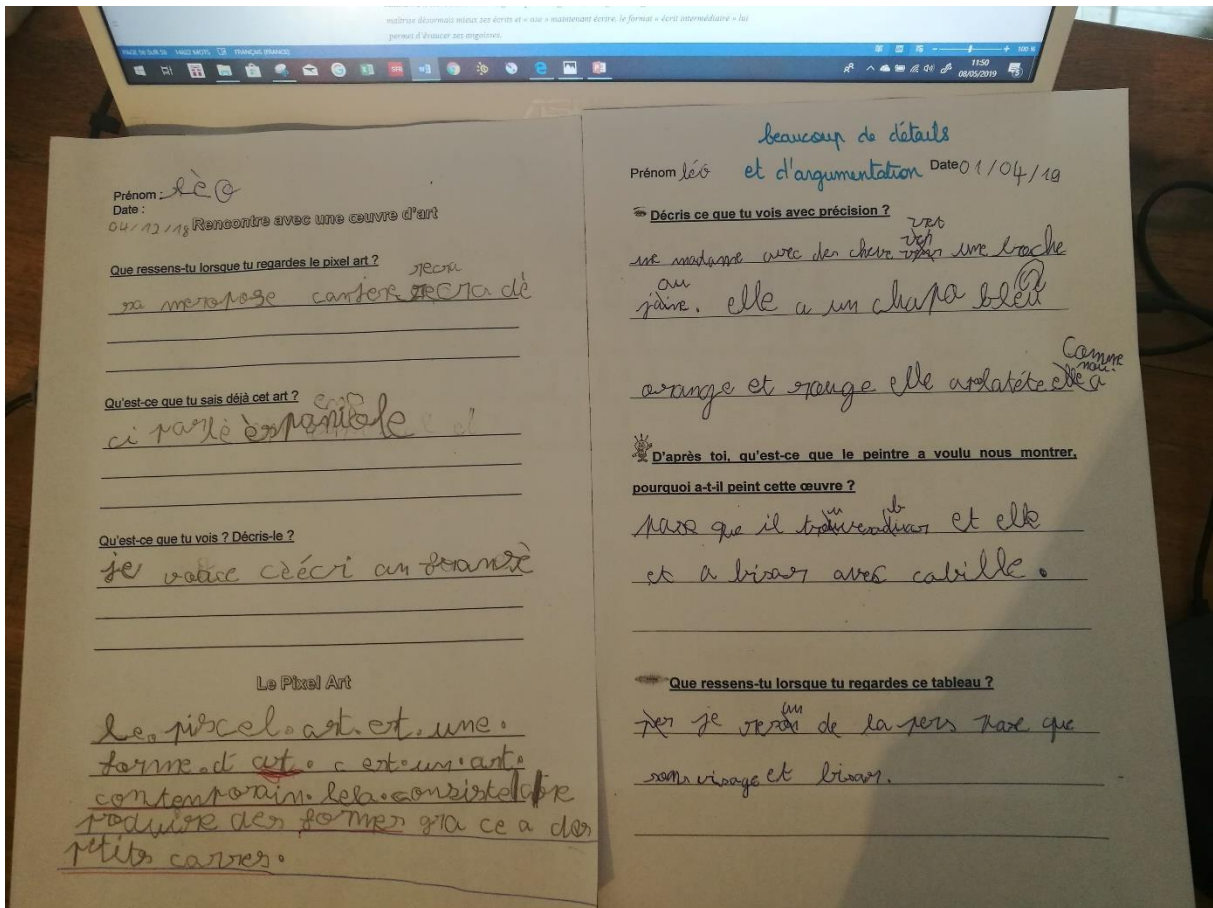 maîtrise désormais mieux ses écrits et « ose » maintenant écrire. le format « écrit intermédiaire » lui
permet d'évacuer ses angoisses.
PAGE 56 SUR 59 MOTS FRANÇAIS (FRANCE) 100 %
11:50
08/05/2019
Prénom : Lèo
Date :
04/12/18 Rencontre avec une œuvre d'art
Que ressens-tu lorsque tu regardes le pixel art ?
recra
sa meropose cantere recra dè
Qu'est-ce que tu sais déjà cet art ?
ci parlè èspaniole
Qu'est-ce que tu vois ? Décris-le ?
je voiice cèècri an franxè
Le Pixel Art
le. piscel. art. est. une.
forme. d art. c est. un. art.
contemporain. lela. consiste a re
produire des formes gra ce a des
petits carres.
beaucoup de détails
et d'argumentation
Prénom léo Date 01/04/19
Décris ce que tu vois avec précision ?
vert
une madame avec des cheve une broche
au
jaine. elle a un chapo bleu
Comme
noir.
orange et rouge elle arlatéte elle a
D'après toi, qu'est-ce que le peintre a voulu nous montrer,
pourquoi a-t-il peint cette œuvre ?
parse que il et elle
et a bisar avec cabille.
Que ressens-tu lorsque tu regardes ce tableau ?
je de la pers parse que
son visage et bisar.